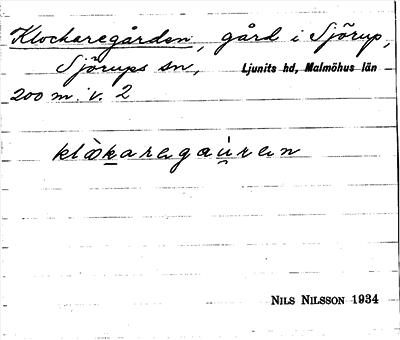 Klockaregården, gård i Sjörup,
Sjörups sn, Ljunits hd, Malmöhus län
200 m. v. 2
klòkaregau̯ren
NILS NILSSON 1934